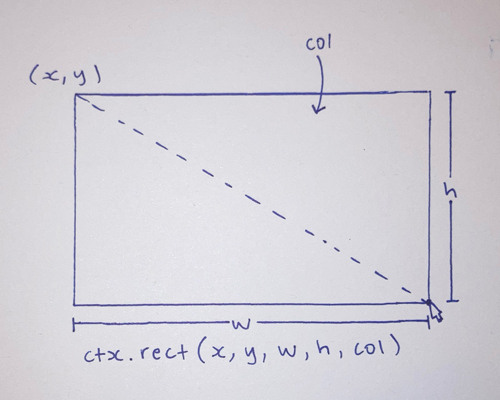 col
(x,y)
h
w
ctx.rect(x, y, w, h, col)